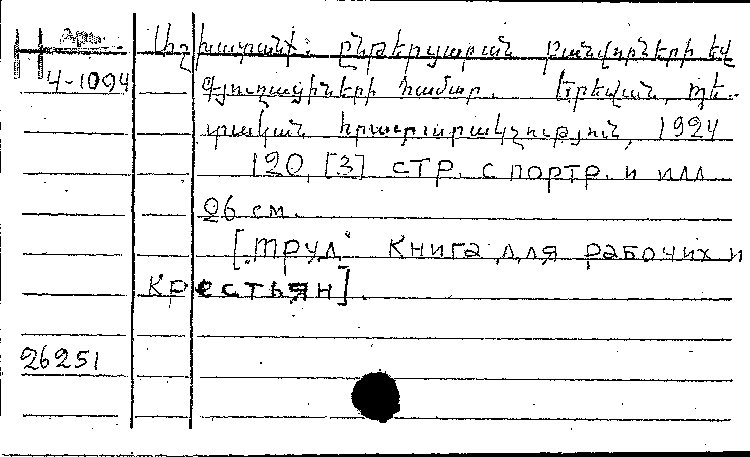 Арм. Աշխատանք: ընթերցարան բանվորների եվ
4-1094 գյուղացիների համար. Երեվան, պե-
տական հրատարակչություն, 1924
120, [3] стр. с портр. и илл
26 см.
["Труд" Книга для рабочих и
крестьян].
26251